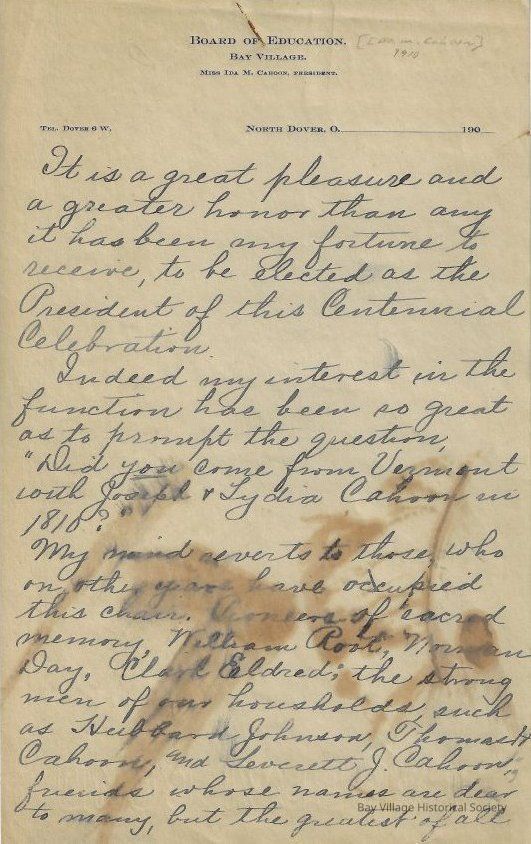 Board of Education,
[Ida M. Cahoon]
Bay Village.
1910
Miss Ida M. Cahoon, President.
Tel. Dover 6 W.
North Dover, O. 190
It is a great pleasure and
a greater honor than any
it has been my fortune to
receive, to be elected as the
President of this Centennial
Celebration.
Indeed my interest in the
function has been so great
as to prompt the question,
"Did you come from Vermont
with Joseph & Lydia Cahoon in
1810?"
My mind reverts to those who
on other years have occupied
this chair. Pioneers of sacred
memory, William Root, Norman
Day, Clark Eldred; the strong
men of our housholds such
as Hubbard Johnson, Thomas H
Cahoon, and Leverett J. Cahoon,
friends whose names are dear
to many, but the greatest of all
Bay Village Historical Society